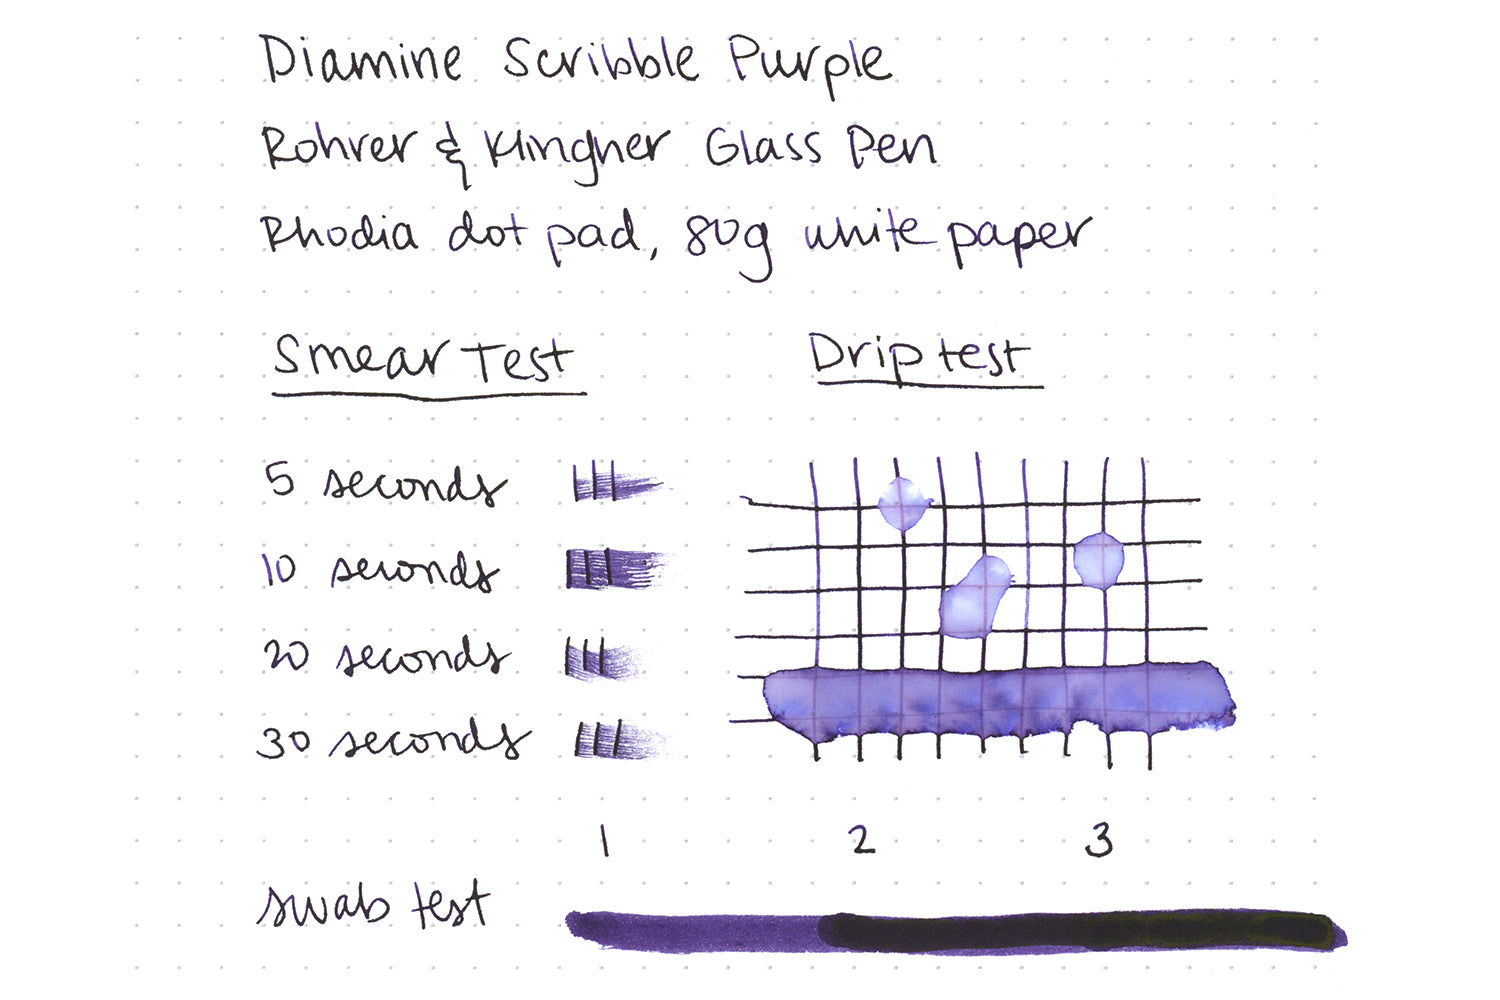 Diamine Scribble Purple
Rohrer & Klingner Glass Pen
Rhodia dot pad, 80g white paper
Smear Test
5 seconds
10 seconds
20 seconds
30 seconds
Drip test
1 2 3
swab test